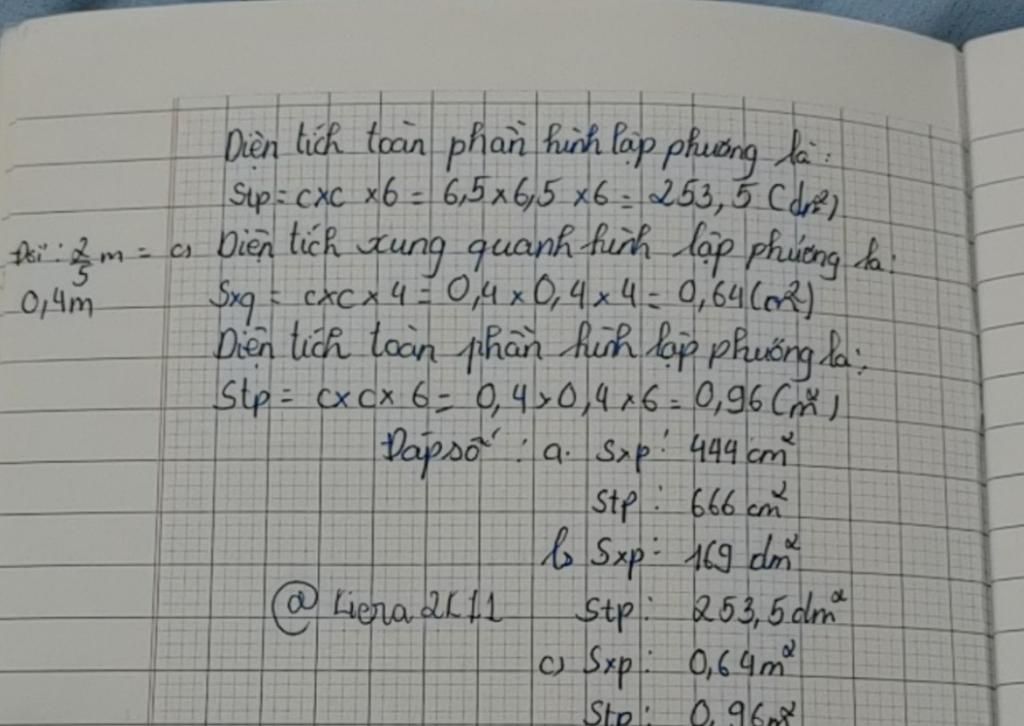 Diện tích toàn phần hình lập phương là:
Stp = c×c ×6 = 6,5×6,5 ×6 = 253,5 (dm²)
Đổi: 2/5 m = 0,4m
c) Diện tích xung quanh hình lập phương là:
Sxq = c×c×4 = 0,4×0,4×4 = 0,64(m²)
Diện tích toàn phần hình lập phương là:
Stp = c×c×6 = 0,4×0,4×6 = 0,96(m²)
Đáp số: a. Sxp: 444 cm²
Stp: 666 cm²
b) Sxp: 169 dm²
@Kiera2k11 Stp: 253,5dm²
c) Sxp: 0,64m²
Stp: 0,96m²